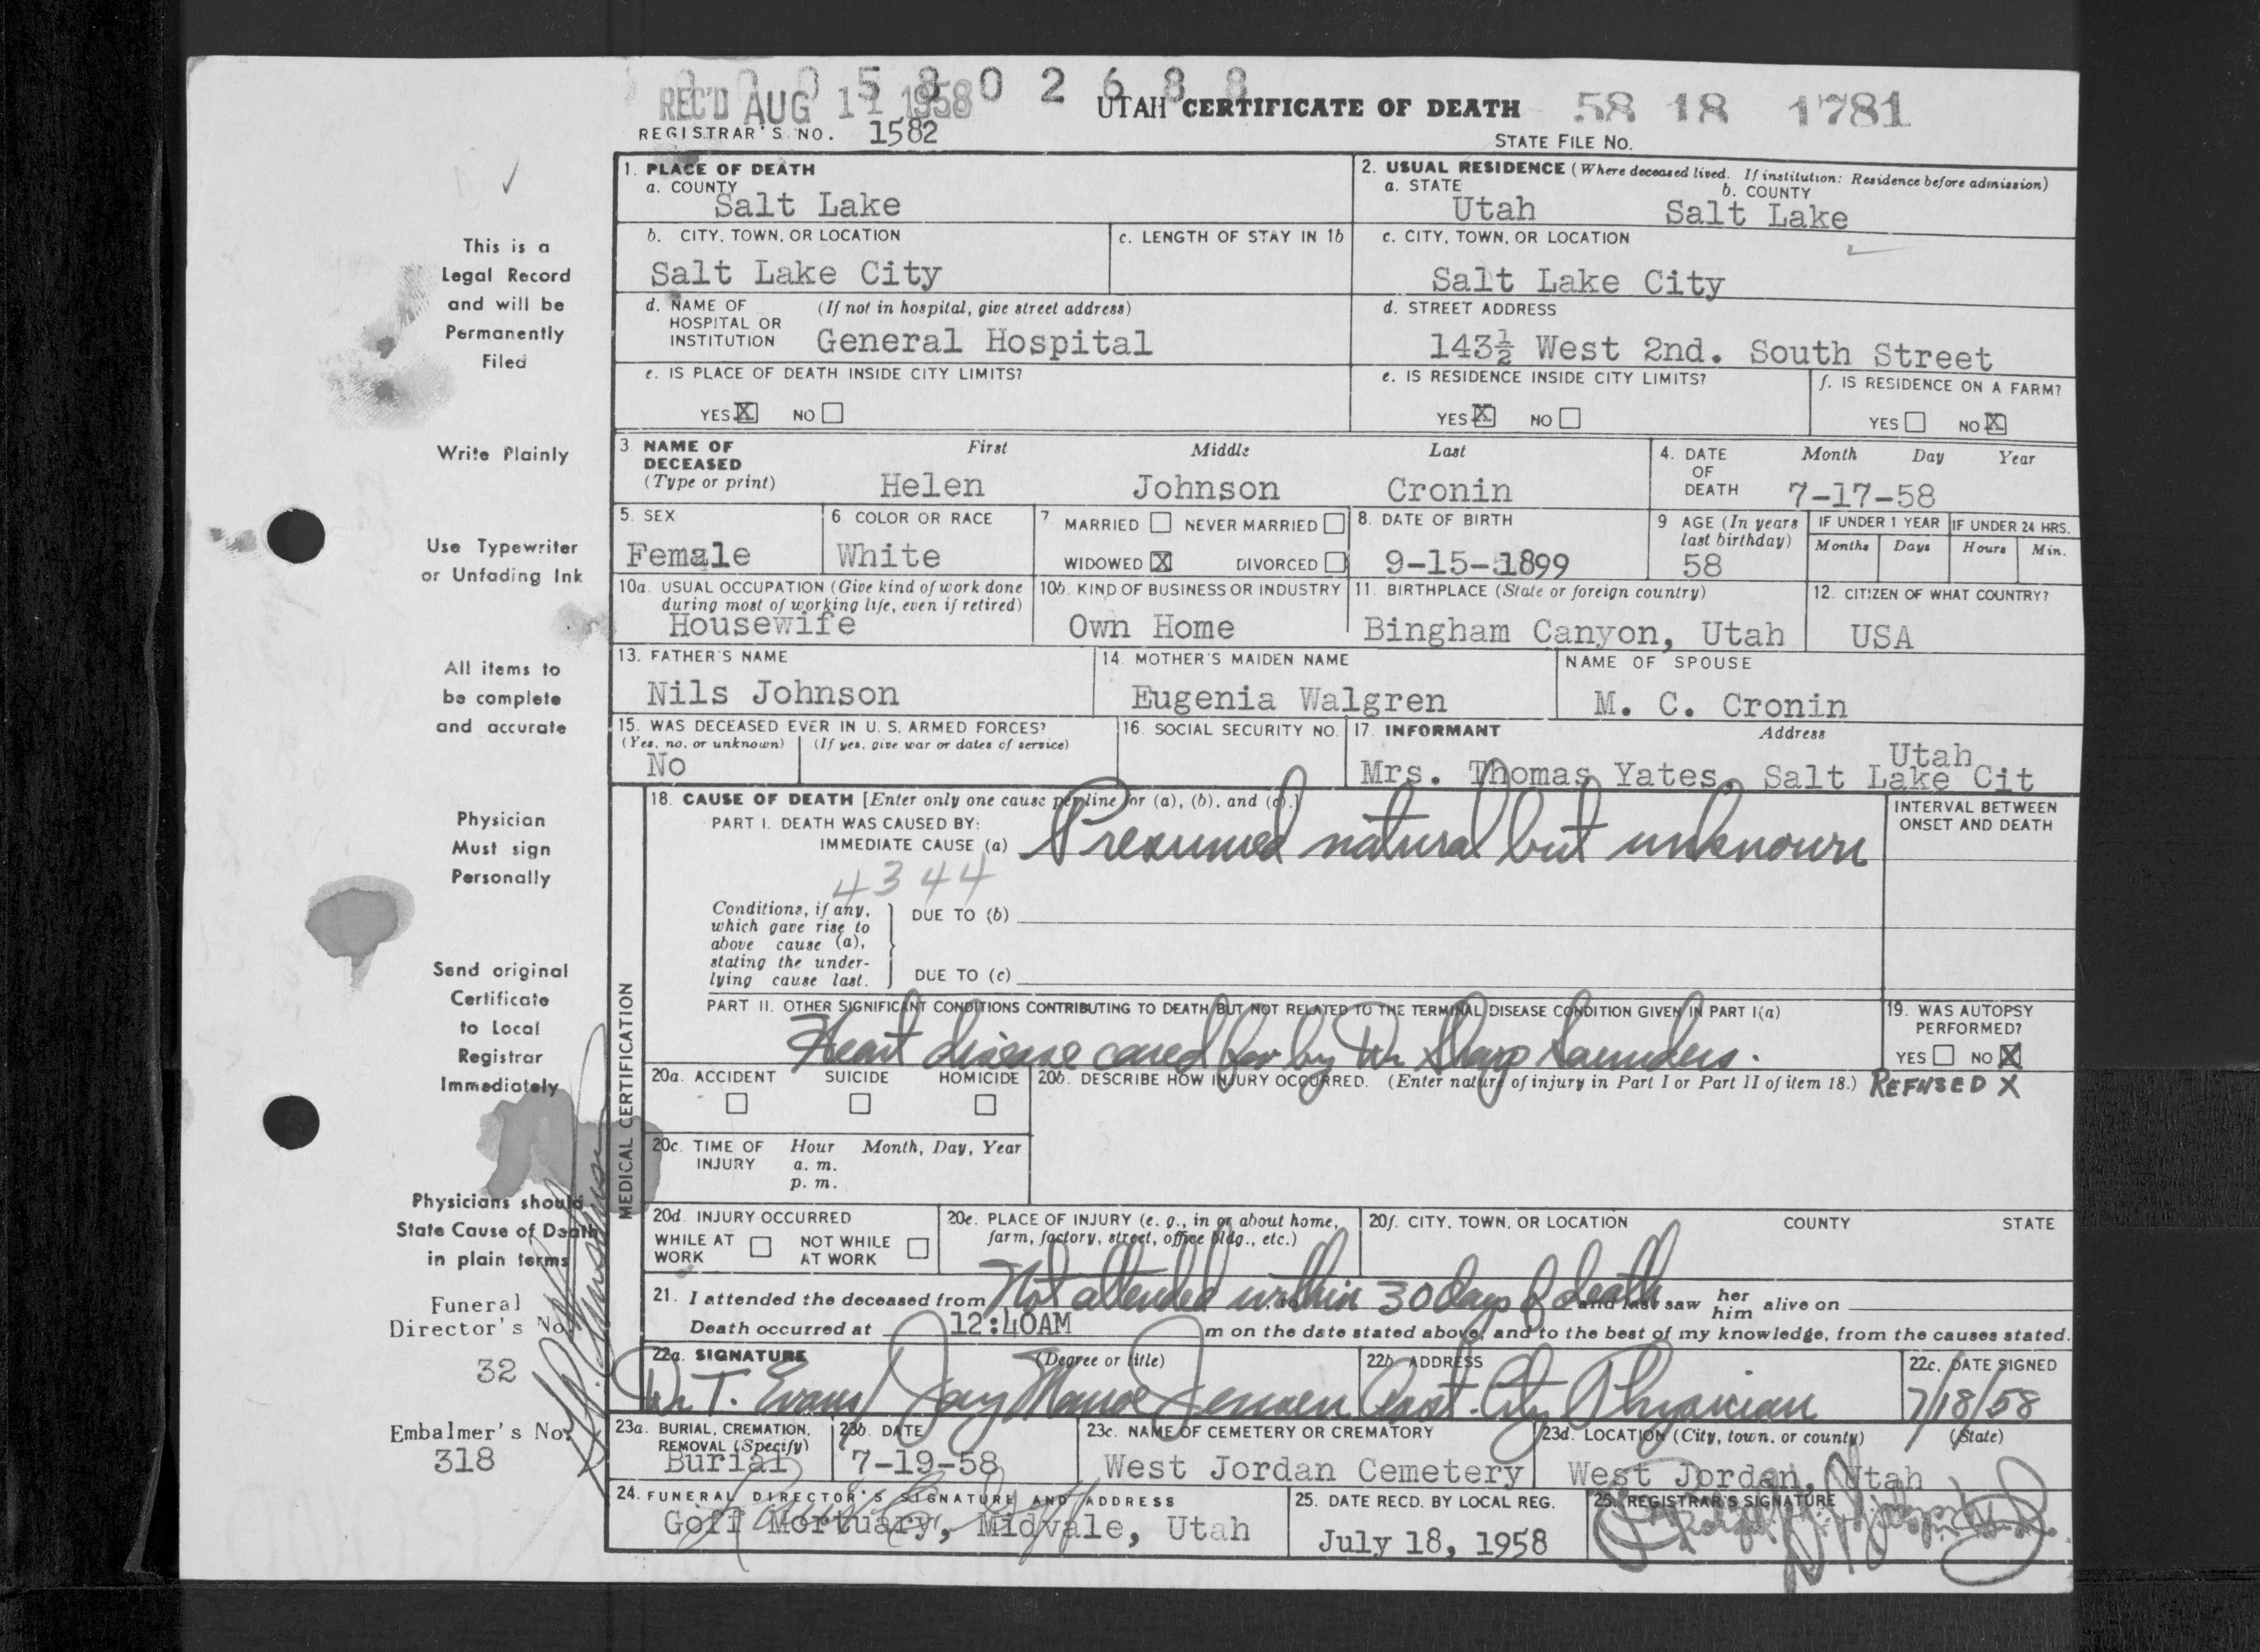 0 0 0 5 8 0 2 6 8 8
REC'D AUG 11 1958 UTAH CERTIFICATE OF DEATH 58 18 1781
REGISTRAR'S NO. 1582 STATE FILE NO.
1. PLACE OF DEATH
a. COUNTY
Salt Lake
2. USUAL RESIDENCE (Where deceased lived. If institution: Residence before admission)
a. STATE b. COUNTY
Utah Salt Lake
b. CITY, TOWN, OR LOCATION
Salt Lake City
c. LENGTH OF STAY IN 1b
c. CITY, TOWN, OR LOCATION
Salt Lake City
d. NAME OF (If not in hospital, give street address)
HOSPITAL OR
INSTITUTION General Hospital
d. STREET ADDRESS
143½ West 2nd. South Street
e. IS PLACE OF DEATH INSIDE CITY LIMITS?
YES X NO
e. IS RESIDENCE INSIDE CITY LIMITS?
YES X NO
f. IS RESIDENCE ON A FARM?
YES NO X
3. NAME OF First Middle Last
DECEASED
(Type or print) Helen Johnson Cronin
4. DATE Month Day Year
OF
DEATH 7-17-58
5. SEX
Female
6. COLOR OR RACE
White
7 MARRIED NEVER MARRIED
WIDOWED X DIVORCED
8. DATE OF BIRTH
9-15-1899
9 AGE (In years
last birthday)
58
IF UNDER 1 YEAR IF UNDER 24 HRS.
Months Days Hours Min.
10a. USUAL OCCUPATION (Give kind of work done
during most of working life, even if retired)
Housewife
10b. KIND OF BUSINESS OR INDUSTRY
Own Home
11. BIRTHPLACE (State or foreign country)
Bingham Canyon, Utah
12. CITIZEN OF WHAT COUNTRY?
USA
13. FATHER'S NAME
Nils Johnson
14. MOTHER'S MAIDEN NAME
Eugenia Walgren
NAME OF SPOUSE
M. C. Cronin
15. WAS DECEASED EVER IN U. S. ARMED FORCES?
(Yes, no, or unknown) (If yes, give war or dates of service)
No
16. SOCIAL SECURITY NO.
17. INFORMANT Address
Utah
Mrs. Thomas Yates, Salt Lake Cit
MEDICAL CERTIFICATION
18. CAUSE OF DEATH [Enter only one cause per line for (a), (b), and (c).]
PART I. DEATH WAS CAUSED BY:
IMMEDIATE CAUSE (a) Presumed natural but unknown
4344
INTERVAL BETWEEN
ONSET AND DEATH
Conditions, if any,
which gave rise to
above cause (a),
stating the under-
lying cause last.
DUE TO (b)
DUE TO (c)
PART II. OTHER SIGNIFICANT CONDITIONS CONTRIBUTING TO DEATH BUT NOT RELATED TO THE TERMINAL DISEASE CONDITION GIVEN IN PART I(a)
Heart disease cared for by Dr. Sharp Saunders.
19. WAS AUTOPSY
PERFORMED?
YES NO X
REFUSED X
20a. ACCIDENT SUICIDE HOMICIDE
20b. DESCRIBE HOW INJURY OCCURRED. (Enter nature of injury in Part I or Part II of item 18.)
20c. TIME OF Hour Month, Day, Year
INJURY a. m.
p. m.
20d. INJURY OCCURRED
WHILE AT NOT WHILE
WORK AT WORK
20e. PLACE OF INJURY (e. g., in or about home,
farm, factory, street, office bldg., etc.)
20f. CITY, TOWN, OR LOCATION COUNTY STATE
21. I attended the deceased from Not attended within 30 days of death and last saw her him alive on
Death occurred at 12:40AM m on the date stated above, and to the best of my knowledge, from the causes stated.
22a. SIGNATURE (Degree or title)
Dr. T. Evans Jay Monroe Jensen
22b. ADDRESS
Asst. City Physician
22c. DATE SIGNED
7/18/58
23a. BURIAL, CREMATION,
REMOVAL (Specify)
Burial
23b. DATE
7-19-58
23c. NAME OF CEMETERY OR CREMATORY
West Jordan Cemetery
23d. LOCATION (City, town, or county) (State)
West Jordan, Utah
24. FUNERAL DIRECTOR'S SIGNATURE AND ADDRESS
Goff Mortuary, Midvale, Utah
25. DATE RECD. BY LOCAL REG.
July 18, 1958
26. REGISTRAR'S SIGNATURE
This is a
Legal Record
and will be
Permanently
Filed
Write Plainly
Use Typewriter
or Unfading Ink
All items to
be complete
and accurate
Physician
Must sign
Personally
Send original
Certificate
to Local
Registrar
Immediately
Physicians should
State Cause of Death
in plain terms
Funeral
Director's No.
32
Embalmer's No.
318